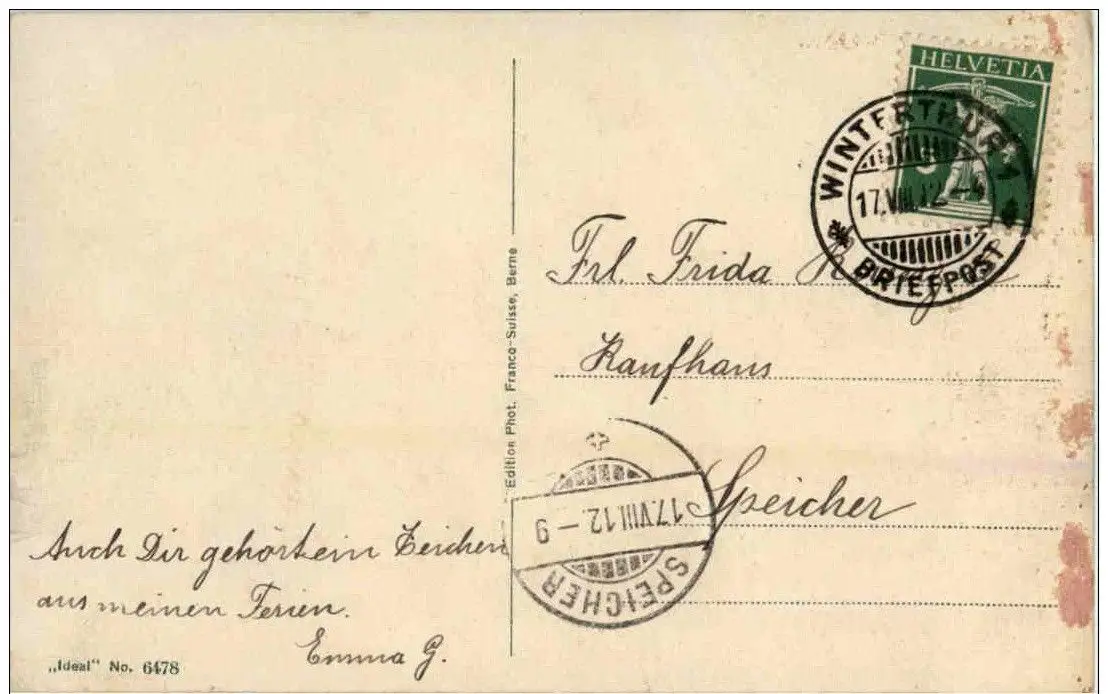 HELVETIA
WINTERTHUR 1
17.VIII.12.–
BRIEFPOST
Frl. Frida
Kaufhaus
Speicher
17.VIII.12.–9
SPEICHER
Edition Phot. Franco-Suisse, Berne
Auch Dir gehört ein Zeichen
aus meinen Ferien.
Emma G.
„Ideal“ No. 6478